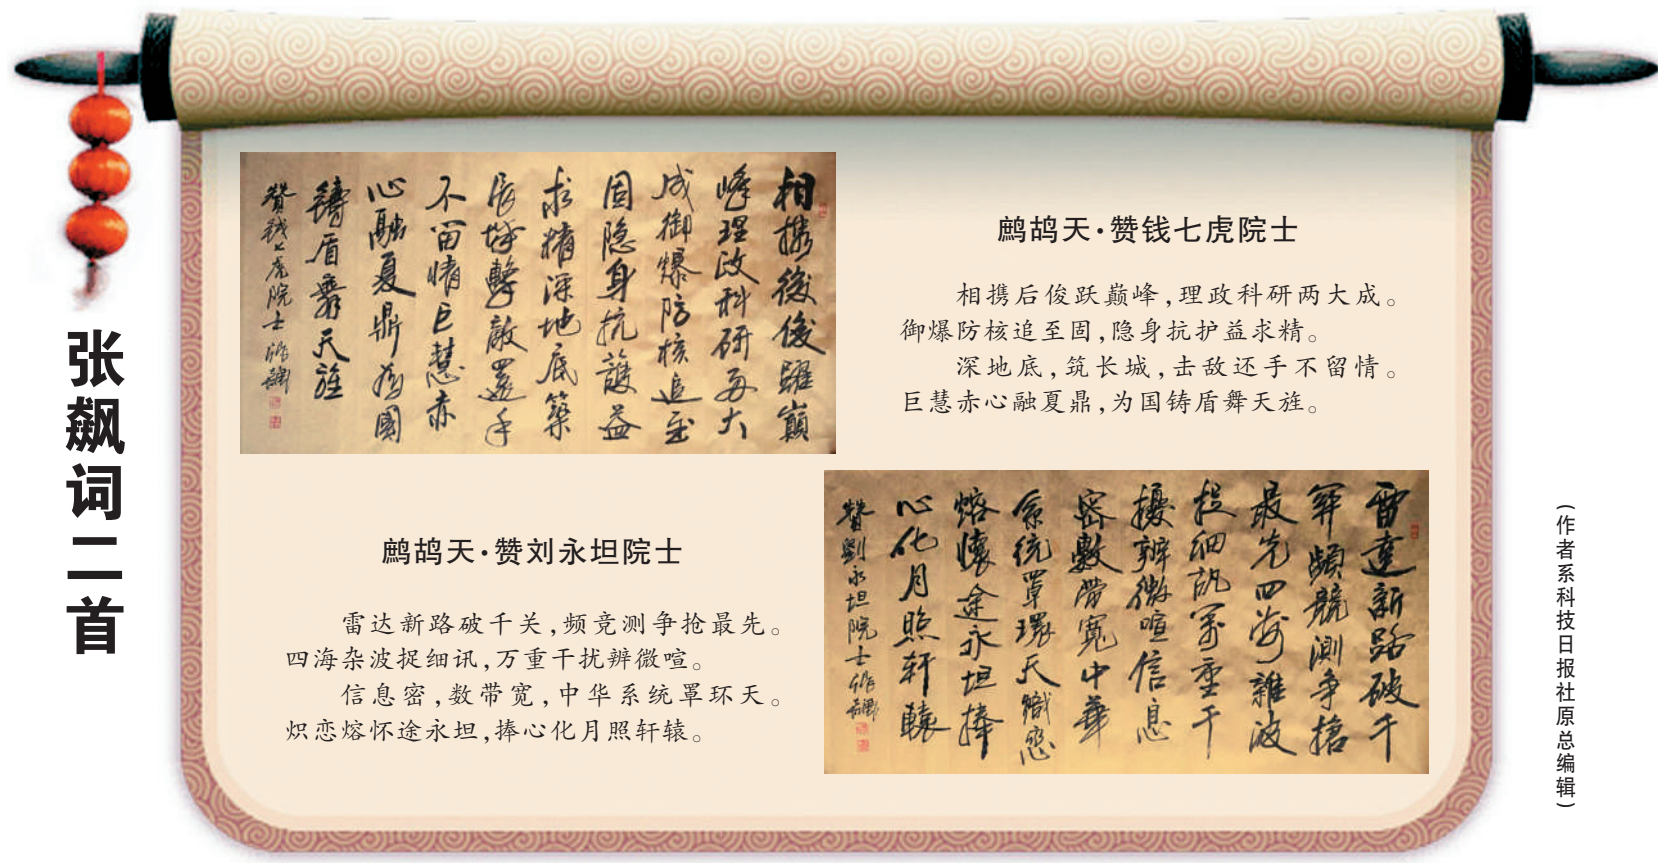 张飙词二首
相攜後俊躍巔
峰理政科研兩大
成御爆防核追至
固隐身抗護益
求精深地底築
長城擊敵還手
不留情巨慧赤
心融夏鼎為國
鑄盾舞天旌
贊錢七虎院士 張飆
鹧鸪天·赞钱七虎院士
相携后俊跃巅峰,理政科研两大成。
御爆防核追至固,隐身抗护益求精。
深地底,筑长城,击敌还手不留情。
巨慧赤心融夏鼎,为国铸盾舞天旌。
鹧鸪天·赞刘永坦院士
雷达新路破千关,频竞测争抢最先。
四海杂波捉细讯,万重干扰辨微喧。
信息密,数带宽,中华系统罩环天。
炽恋熔怀途永坦,捧心化月照轩辕。
雷達新路破千
關頻競測争搶
最先四海雜波
捉細訊萬重干
擾辨微喧信息
密數帶寬中華
系統罩環天熾戀
熔懷途永坦捧
心化月照軒轅
贊劉永坦院士 張飆
(作者系科技日报社原总编辑)